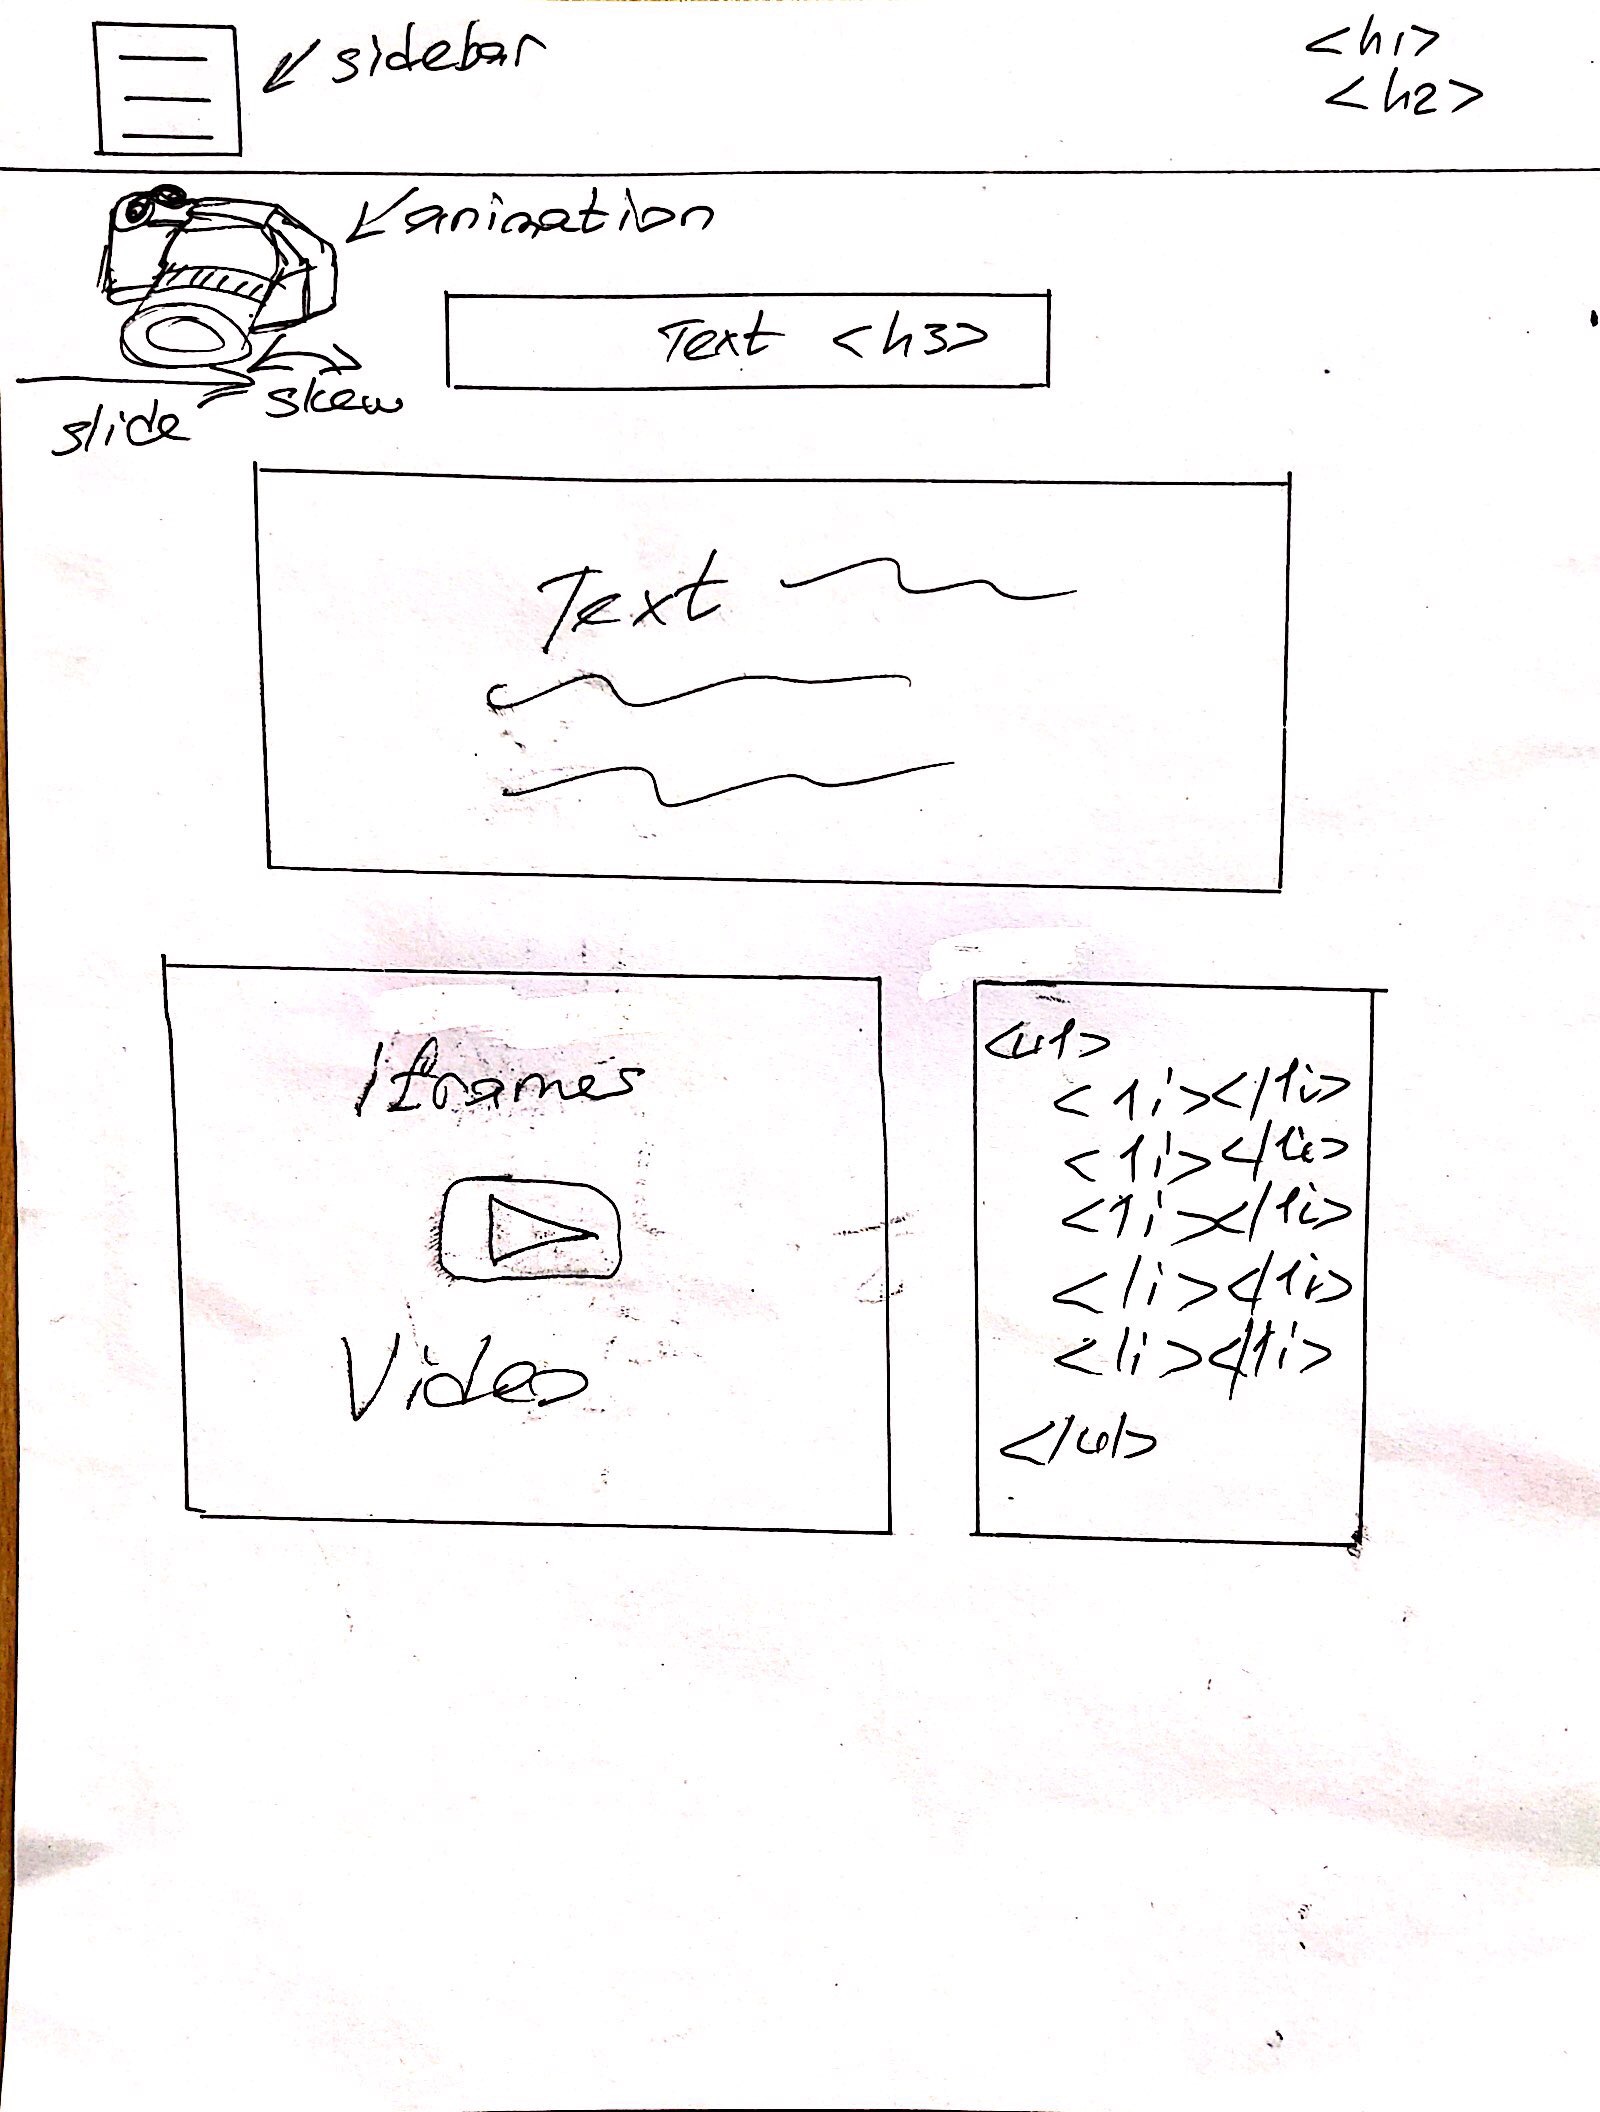 sidebar
<h1>
<h2>
animation
Text <h3>
slide
skew
Text
Iframes
Video
<ul>
<li></li>
<li></li>
<li></li>
<li></li>
<li></li>
</ul>